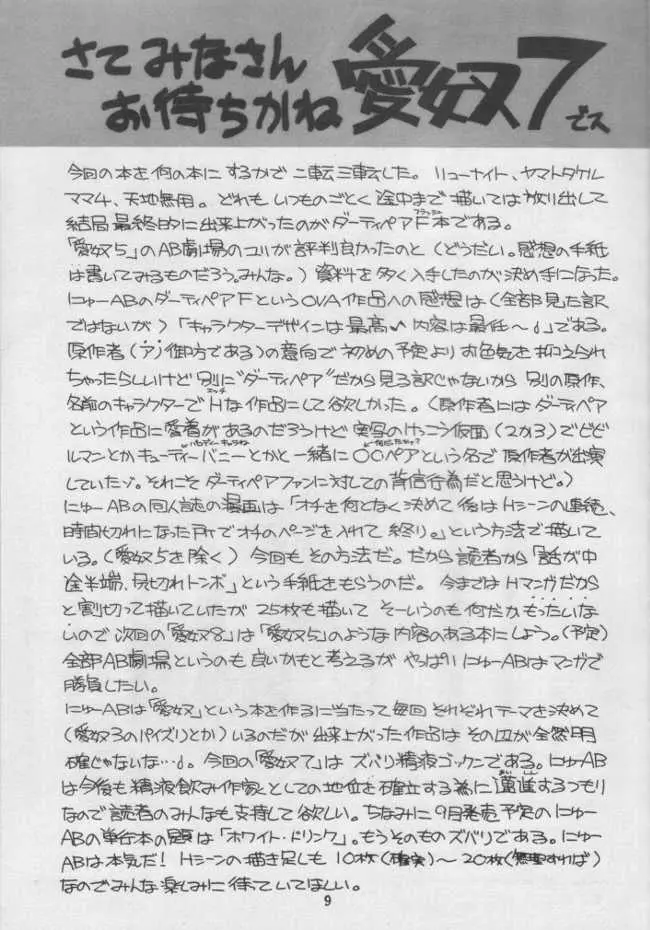 さてみなさん
お待ちかね 愛奴7でス
今回の本を何の本にするかで二転三転した。リューナイト、ヤマトタケル
ママ4、天地無用。どれもいつものごとく途中まで描いては放り出して
結局最終的に出来上がったのがダーティペアF本である。
フラッシュ
「愛奴5」のAB劇場のユリが評判良かったのと(どうだい。感想の手紙
は書いてみるものだろう。みんな。)資料を多く入手したのが決め手になった。
にゅーABのダーティペアFというOVA作品への感想は(全部見た訳
ではないが)「キャラクターデザインは最高♪内容は最低〜♩」である。
原作者(ア)御方である)の意向で初めの予定よりお色気を抑えられ
ちゃったらしいけど別に"ダーティペア"だから見る訳じゃないから別の原作、
名前のキャラクターでHな作品にして欲しかった。(原作者にはダーティペア
エッチ
という作品に愛着があるのだろうけど実写のけっこう仮面(2か3)でビビ
ルマンとかキューティーバニーとかと一緒に○○ペアという名で原作者が出演
していたゾ。それこそダーティペアファンに対しての背信行為だと思うけど。)
にゅーABの同人誌の漫画は「オチを何となく決めて後はHシーンの連続、
時間切れになった所でオチのページを入れて終り。」という方法で描いて
いる。(愛奴5を除く)今回もその方法だ。だから読者から「話が中
途半端、尻切れトンボ」という手紙をもらうのだ。今まではHマンガだから
と割切って描いていたが25枚も描いてそーいうのも何だかもったいな
いので次回の「愛奴8」は「愛奴5」のような内容のある本にしよう。(予定)
全部AB劇場というのも良いかもと考えるがやっぱりにゅーABはマンガで
勝負したい。
にゅーABは「愛奴」という本を作るに当たって毎回それぞれテーマを決めて
(愛奴3のパイズリとか)いるのだが出来上がった作品はその辺が全然明
確じゃないな…♩。今回の「愛奴7」はズバリ精液ゴックンである。にゅーAB
は今後も精液飲み作家としての地位を確立する為に邁進するつもり
まいしん
なので読者のみんなも支持して欲しい。ちなみに9月発売予定のにゅー
ABの単行本の題は「ホワイト・ドリンク」。もうそのものズバリである。にゅー
ABは本気だ!Hシーンの描き足しも10枚(確実)〜20枚(無理すれば)
なのでみんな楽しみに待っていてほしい。
9